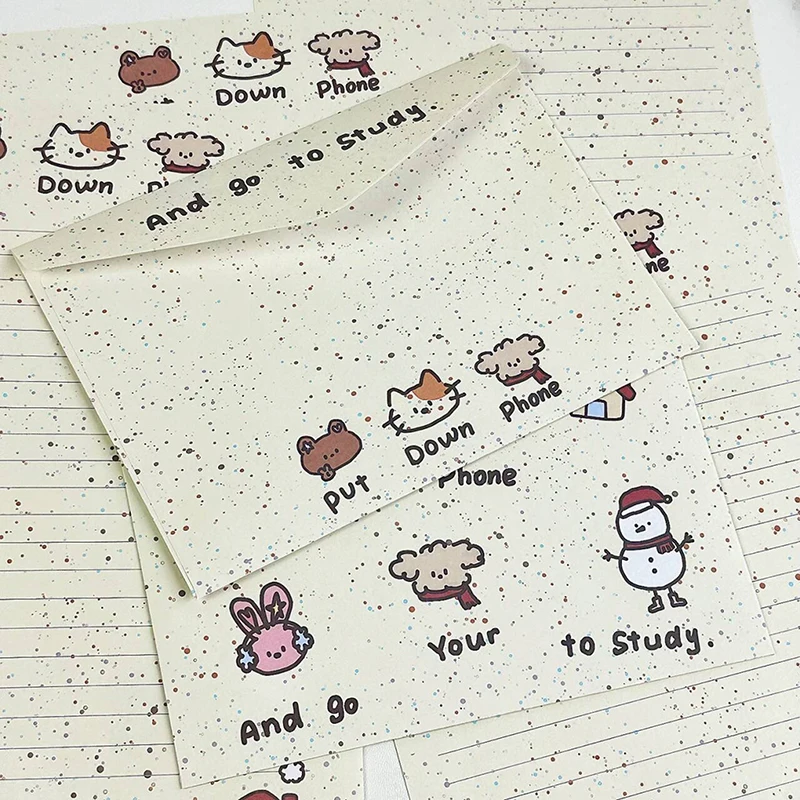 Down Phone
Down
And go to Study.
Put Down Phone
Phone
Your
to Study.
And go